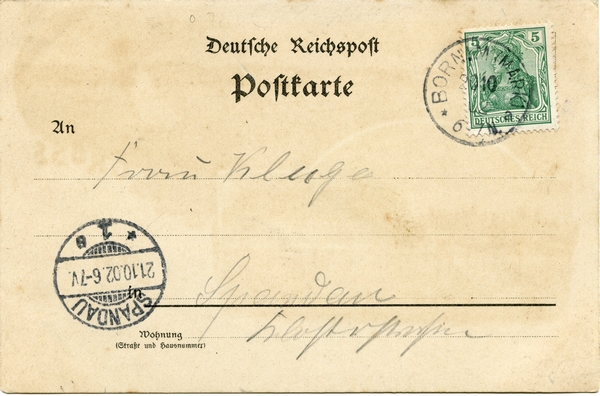 Deutsche Reichspost
Postkarte
5 5
DEUTSCHES REICH
BORN
10
An
Frau Kluge
* 1 e
21.10.02.6-7V.
SPANDAU
in Spandau
Klosterstraße
Wohnung
(Straße und Hausnummer)